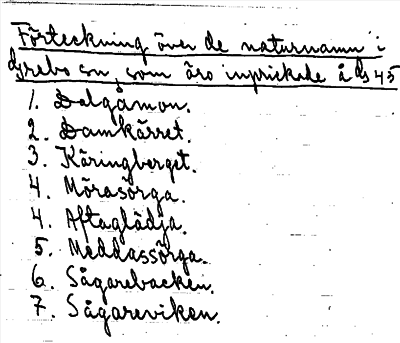 Förteckning över de naturnamn i
Djrebo sn, som äro inprickade å ds 45
1. Dalgåmon.
2. Damkärret.
3. Käringberget.
4. Mörasörga.
4. Aftaglädja.
5. Meddassörga.
6. Sågarebacken.
7. Sågareviken.